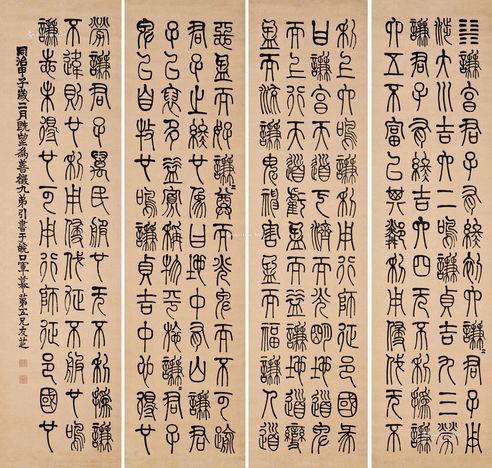 ䷎謙亨君子有終初六謙謙君子用
涉大川吉六二鳴謙貞吉九三勞
謙君子有終吉六四无不利撝謙
六五不富以其鄰利用侵伐无不
利上六鳴謙利用行師征邑國彖
曰謙亨天道下濟而光明地道卑
而上行天道虧盈而益謙地道變
盈而流謙鬼神害盈而福謙人道
惡盈而好謙謙尊而光卑而不可踰
君子之終也象曰地中有山謙
君子以裒多益寡稱物平施謙謙君子
卑以自牧也鳴謙貞吉中心得也
勞謙君子萬民服也无不利撝謙
不違則也利用侵伐征不服也鳴
謙志未得也可用行師征邑國也
同治甲子歲二月既望為善徵九弟引書于皖口軍幕第五兄友芝